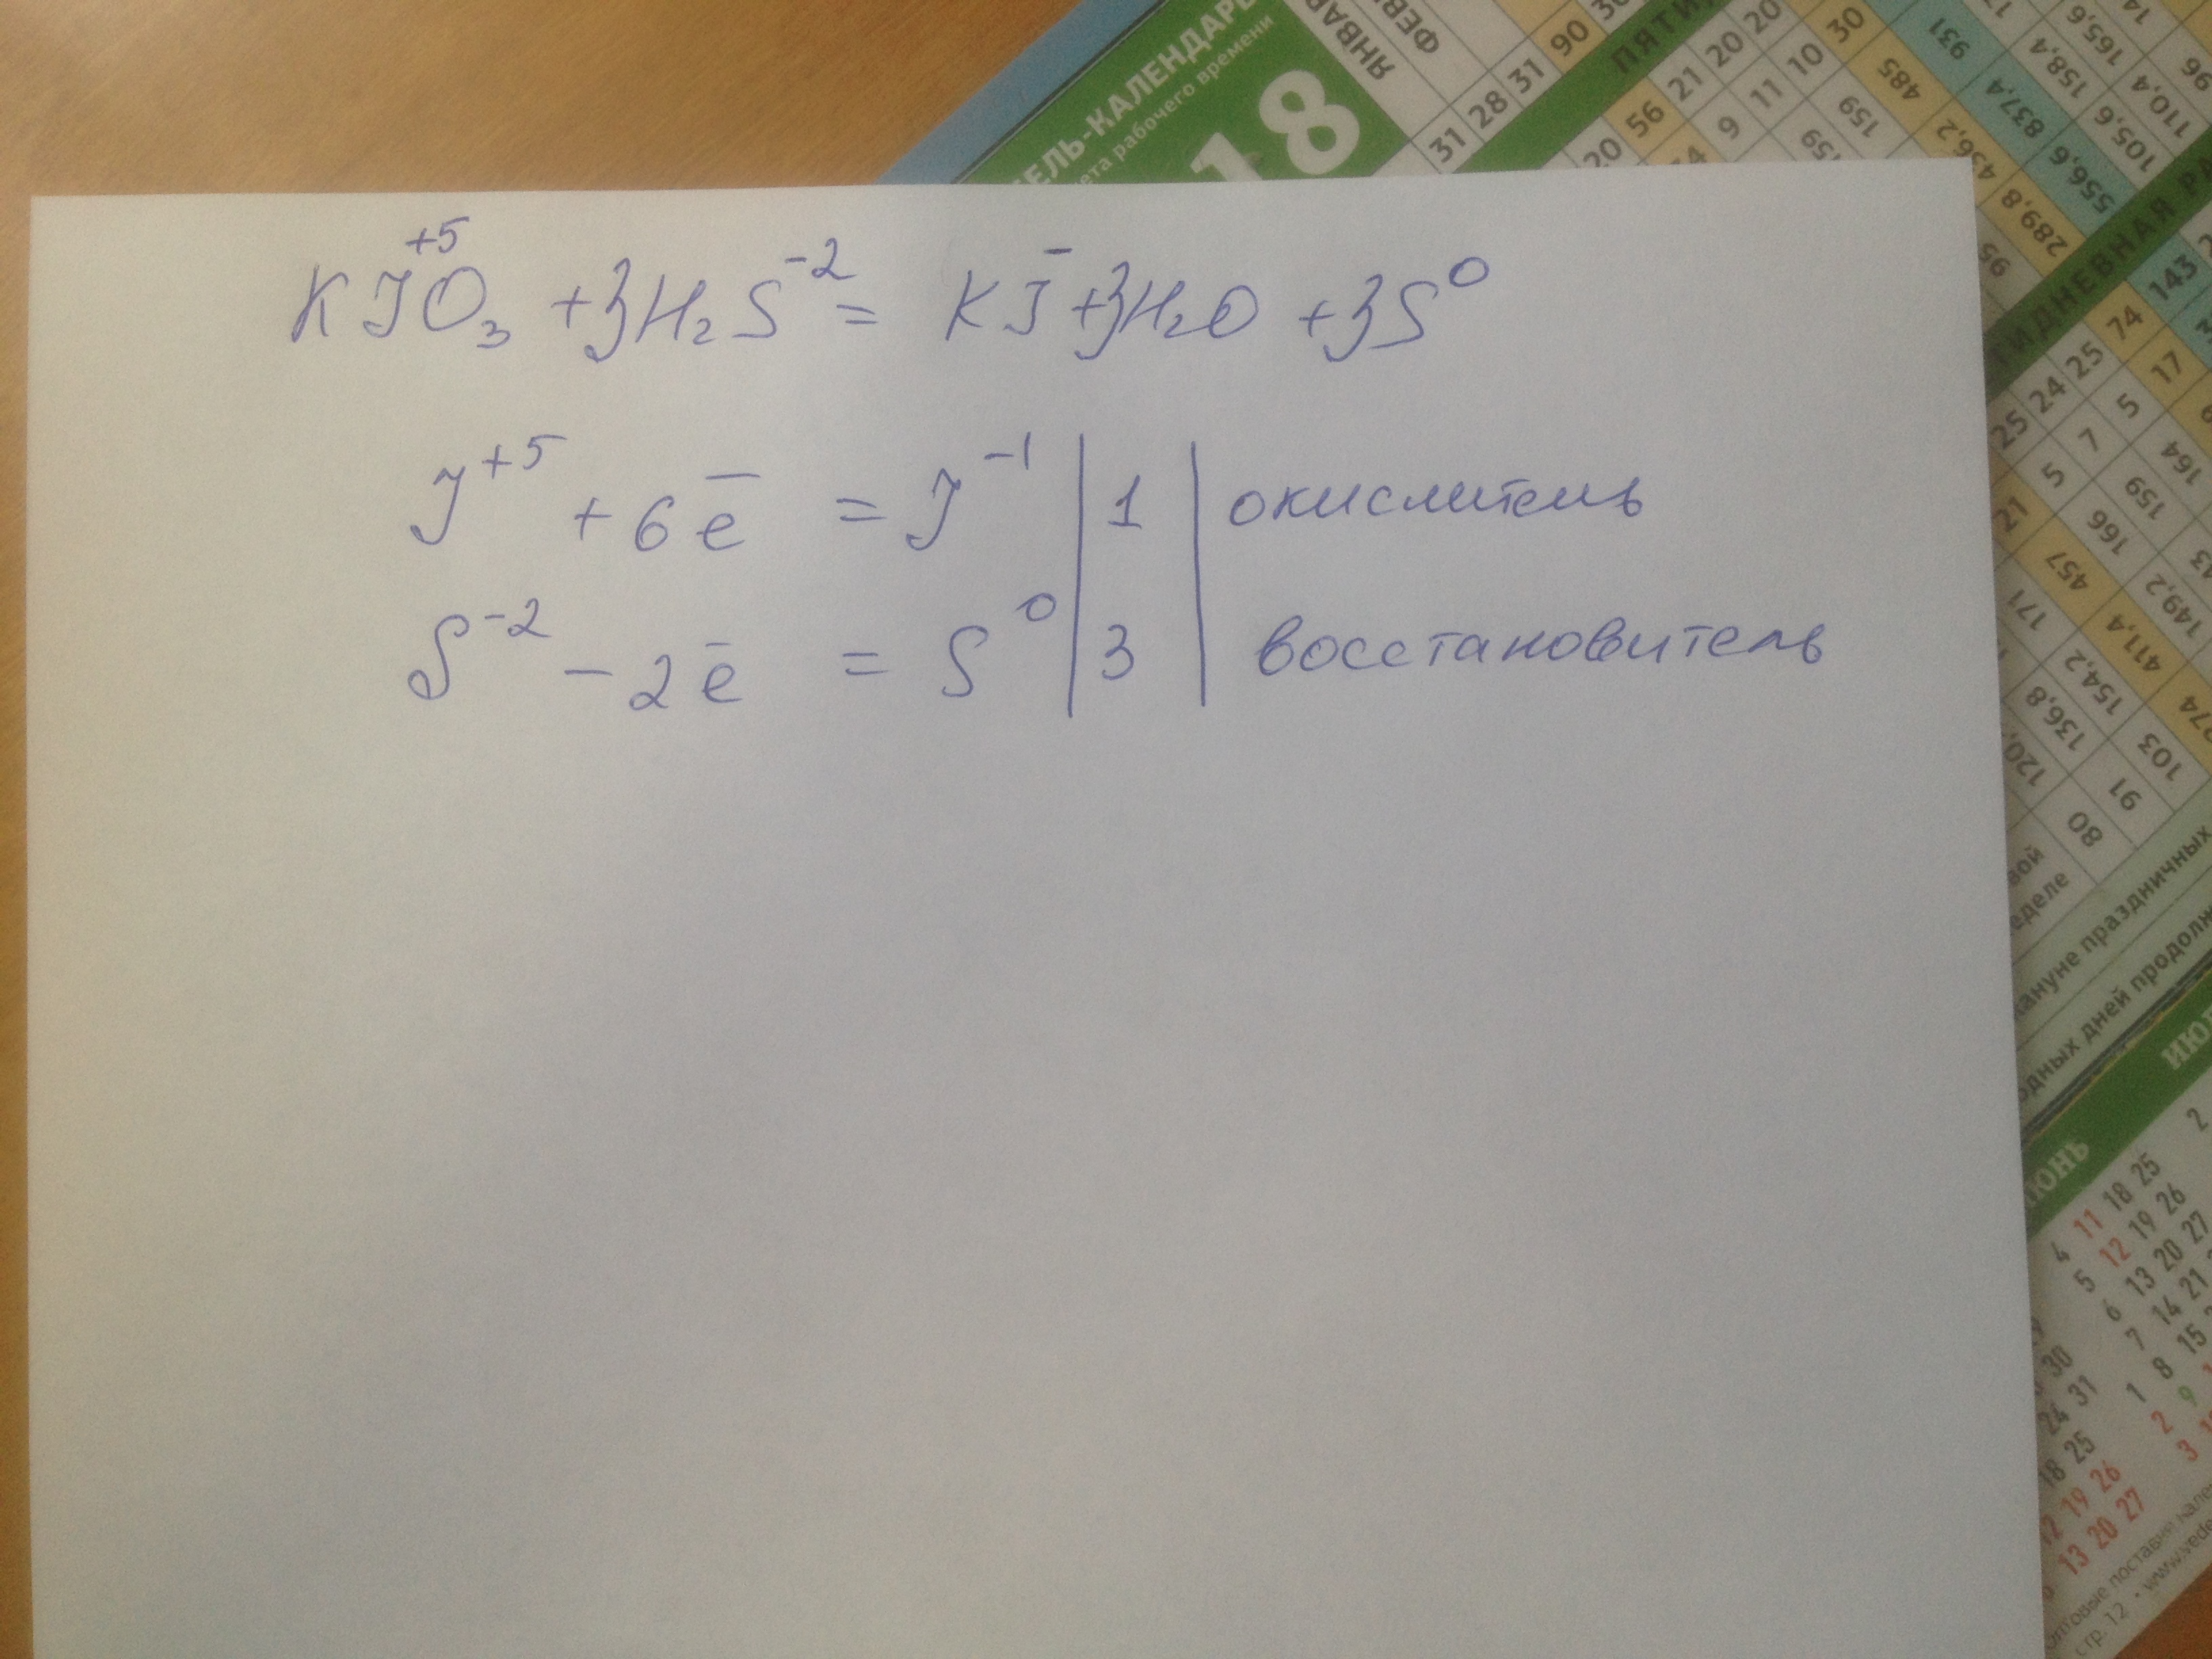 KJ⁺⁵O₃ + 3H₂S⁻² = KJ⁻ + 3H₂O + 3S⁰
J⁺⁵ + 6e̅ = J⁻¹ | 1 | окислитель
S⁻² − 2e̅ = S⁰ | 3 | восстановитель
ЕЛЬ-КАЛЕНДАРЬ
ета рабочего времени
18
ЯНВАР
ФЕВ
31 28 31 90 30
ПЯТИ
20 56 21 20 20
9 11 10 30
159 159 485 931
436,2 837,4 158,4 165,6
289,8 556,6 105,6 110,4
95
ТИДНЕВНАЯ РА
25 24 25 74 143
5 7 5 17
21 166 159 164
457
171 411,4 149,2
120, 136,8 154,2
80 91 103
еделе
кануне праздничных
одных дней продолж
ИЮНЬ
ИЮЛ
4 11 18 25
5 12 19 26
6 13 20 27
7 14 21
1 8 15
2 9
3
30
24 31
18 25
12 19 26
13 20 27
стр. 12 • www.vede